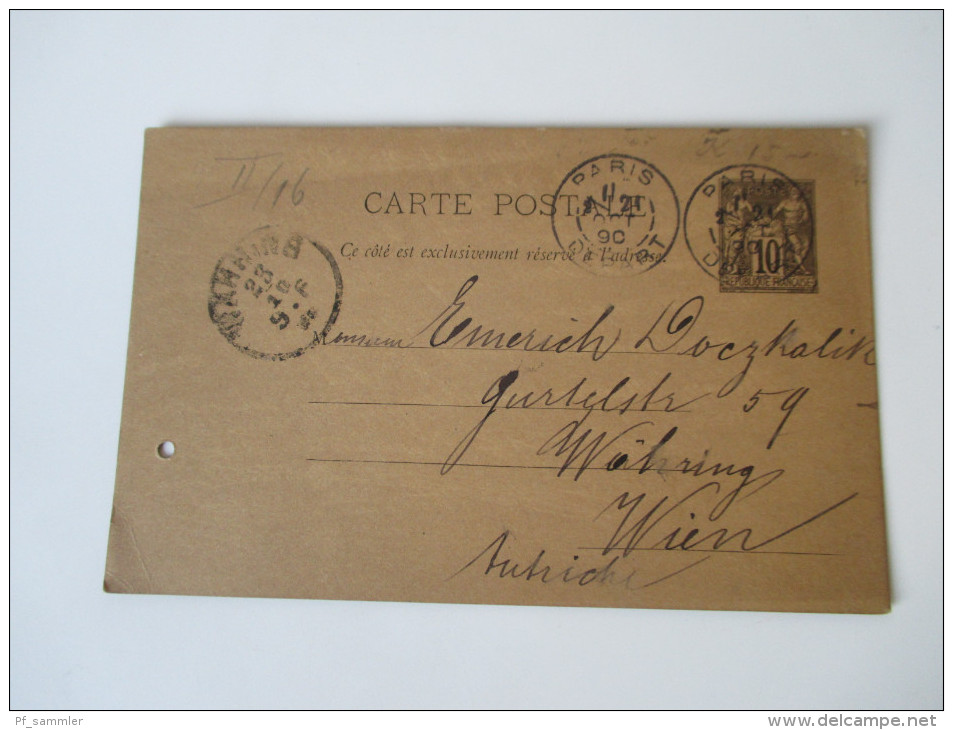 II/16
CARTE POSTALE
Ce côté est exclusivement réservé à l'adresse.
PARIS
21
OCT
90
DEPART
PARIS
21
10
REPUBLIQUE FRANCAISE
WÄHRING
23
Monsieur Emerich Doczkalik
Gürtelstr 59
Währing
Wien
Autriche
Pf_sammler
www.delcampe.net